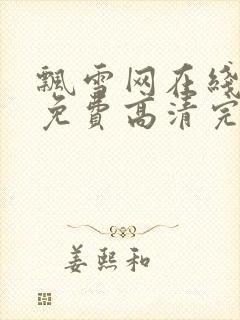 飘雪网在线
免费高清完
姜熙和